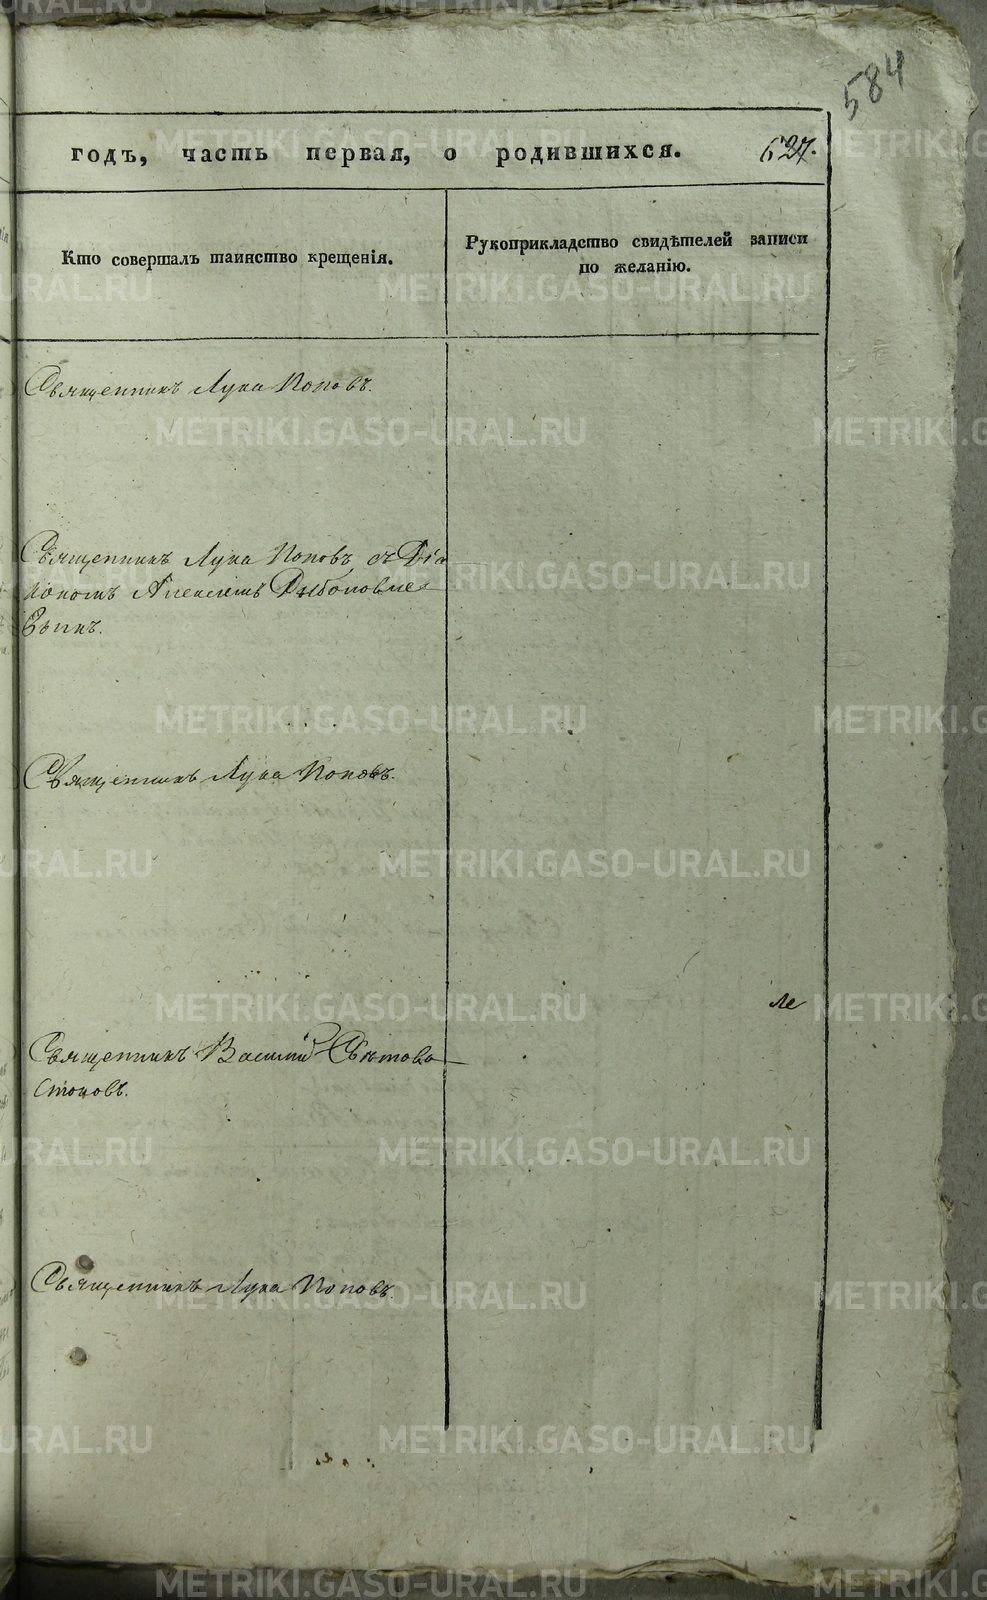 584
годъ, часть первая, о родившихся. 627.
Кто совершалъ таинство крещенія.
Рукоприкладство свидѣтелей записи
по желанію.
Священникъ Лука Поповъ.
Священникъ Лука Поповъ, съ Діа
кономъ Алексіемъ
Священникъ Лука Поповъ.
ле
Священникъ Василій Свѣтово
стоковъ.
Священникъ Лука Поповъ.
METRIKI.GASO-URAL.RU